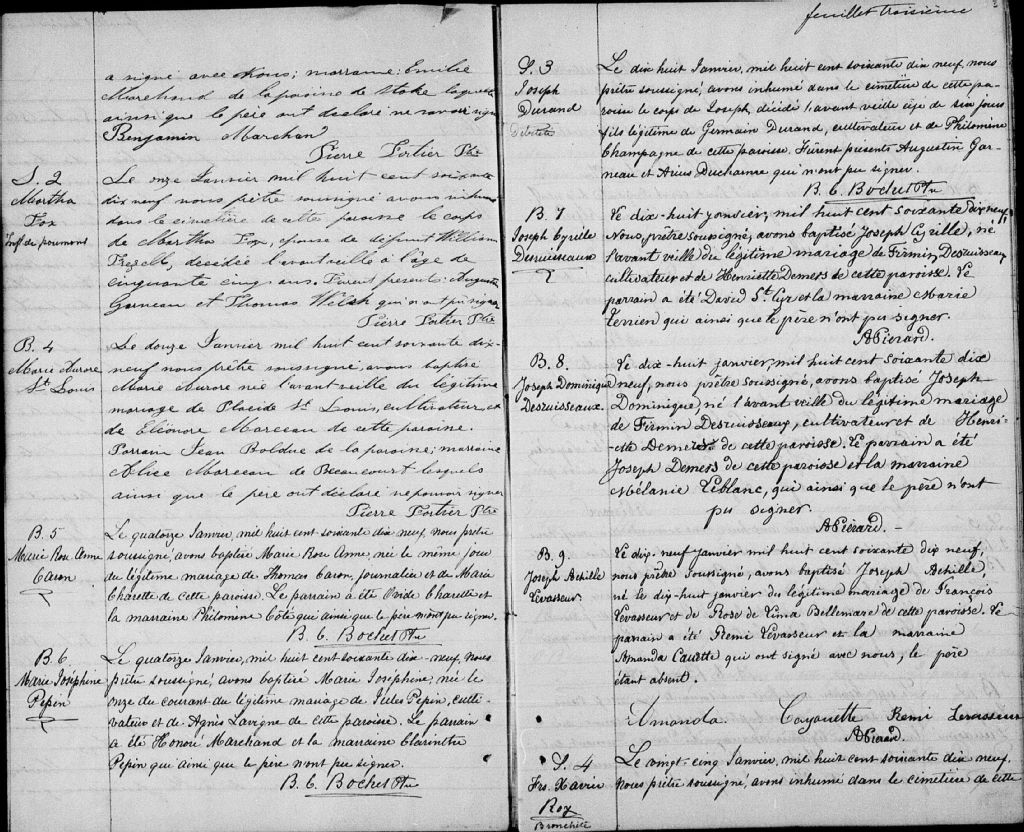 a signé avec Nous; marraine: Emilie
Marchand de la paroisse de Stoke lequel
ainsi que le père ont déclaré ne savoir signer
Benjamin Marchand
Pierre Fortier Ptre
S. 2
Martha
Fox
Inff. de poumons
Le onze Janvier mil huit cent soixante
dix neuf nous prêtre soussigné avons inhumé
dans le cimetière de cette paroisse le corps
de Martha Fox, épouse de défunt William
décédée l'avant veille à l'âge de
cinquante cinq ans. Furent présents: Augustin
Garneau et Thomas Welsh qui n'ont pu signer
Pierre Fortier Ptre
B. 4
Marie Aurore
St Louis
Le douze Janvier mil huit cent soixante dix-
neuf nous prêtre soussigné, avons baptisé
Marie Aurore née l'avant veille du légitime
mariage de Placide St Louis, cultivateur, et
de Eléonore Marceau de cette paroisse.
Parrain Jean Bolduc de la paroisse; marraine
Alice Marceau de Beaucourt lesquels
ainsi que le père ont déclaré ne pouvoir signer
Pierre Fortier Ptre
B. 5
Marie Rose Anne
Caron
Le quatorze Janvier, mil huit cent soixante dix neuf, nous prêtre
soussigné, avons baptisé Marie Rose Anne, née le même jour
du légitime mariage de Thomas Caron, journalier et de Marie
Charette de cette paroisse. Le parrain a été Ovide Charette et
la marraine Philomène Côté qui ainsi que le père n'ont pu signer.
B. C. Bochet Ptre
B. 6
Marie Joséphine
Pepin
Le quatorze Janvier, mil huit cent soixante dix-neuf, nous
prêtre soussigné, avons baptisé Marie Josephine, née le
onze du courant du légitime mariage de Jules Pepin, culti-
vateur et de Agnès Lavigne de cette paroisse. Le parrain
a été Honoré Marchand et la marraine Clarinthe
Pepin qui ainsi que le père n'ont pu signer.
B. C. Bochet Ptre
feuillet troisième
S. 3
Joseph
Durand
Débilité
Le dix huit Janvier, mil huit cent soixante dix neuf, nous
prêtre soussigné, avons inhumé dans le cimetière de cette pa-
roisse le corps de Joseph, décédé l'avant veille âgé de six jours
fils légitime de Germain Durand, cultivateur et de Philomène
Champagne de cette paroisse. Furent présents Augustin Gar-
neau et Duchesne qui n'ont pu signer.
B. C. Bochet Ptre
B. 7
Joseph Cyrille
Desruisseaux
Le dix-huit janvier, mil huit cent soixante dix neuf,
Nous, prêtre soussigné, avons baptisé Joseph Cyrille, né
l'avant veille du légitime mariage de Firmin Desruisseaux
cultivateur et de Henriette Demers de cette paroisse. Le
parrain a été David St Cyr et la marraine Marie
Terrien qui ainsi que le père n'ont pu signer.
A Piérard.
B. 8.
Joseph Dominique
Desruisseaux.
Le dix-huit janvier, mil huit cent soixante dix
neuf, nous, prêtre soussigné, avons baptisé Joseph
Dominique, né l'avant veille du légitime mariage
de Firmin Desruisseaux, cultivateur et de Henri-
ette Demers de cette paroisse. Le parrain a été
Joseph Demers de cette paroisse et la marraine
Mélanie Leblanc, qui ainsi que le père n'ont
pu signer.
A Piérard.
B. 9.
Joseph Achille
Levasseur.
Le dix-neuf janvier mil huit cent soixante dix neuf,
nous, prêtre soussigné, avons baptisé Joseph Achille,
né le dix-huit janvier du légitime mariage de François
Levasseur et de Rose de Lima Bellemare de cette paroisse. Le
parrain a été Remi Levasseur et la marraine
Amanda Cauette qui ont signé avec nous, le père
étant absent.
Amanda Cayouette Remi Levasseur
A Piérard.
S. 4
Frs. Xavier
Roy
Bronchite
Le vingt-cinq Janvier, mil huit cent soixante dix-neuf,
Nous prêtre soussigné, avons inhumé dans le cimetière de cette